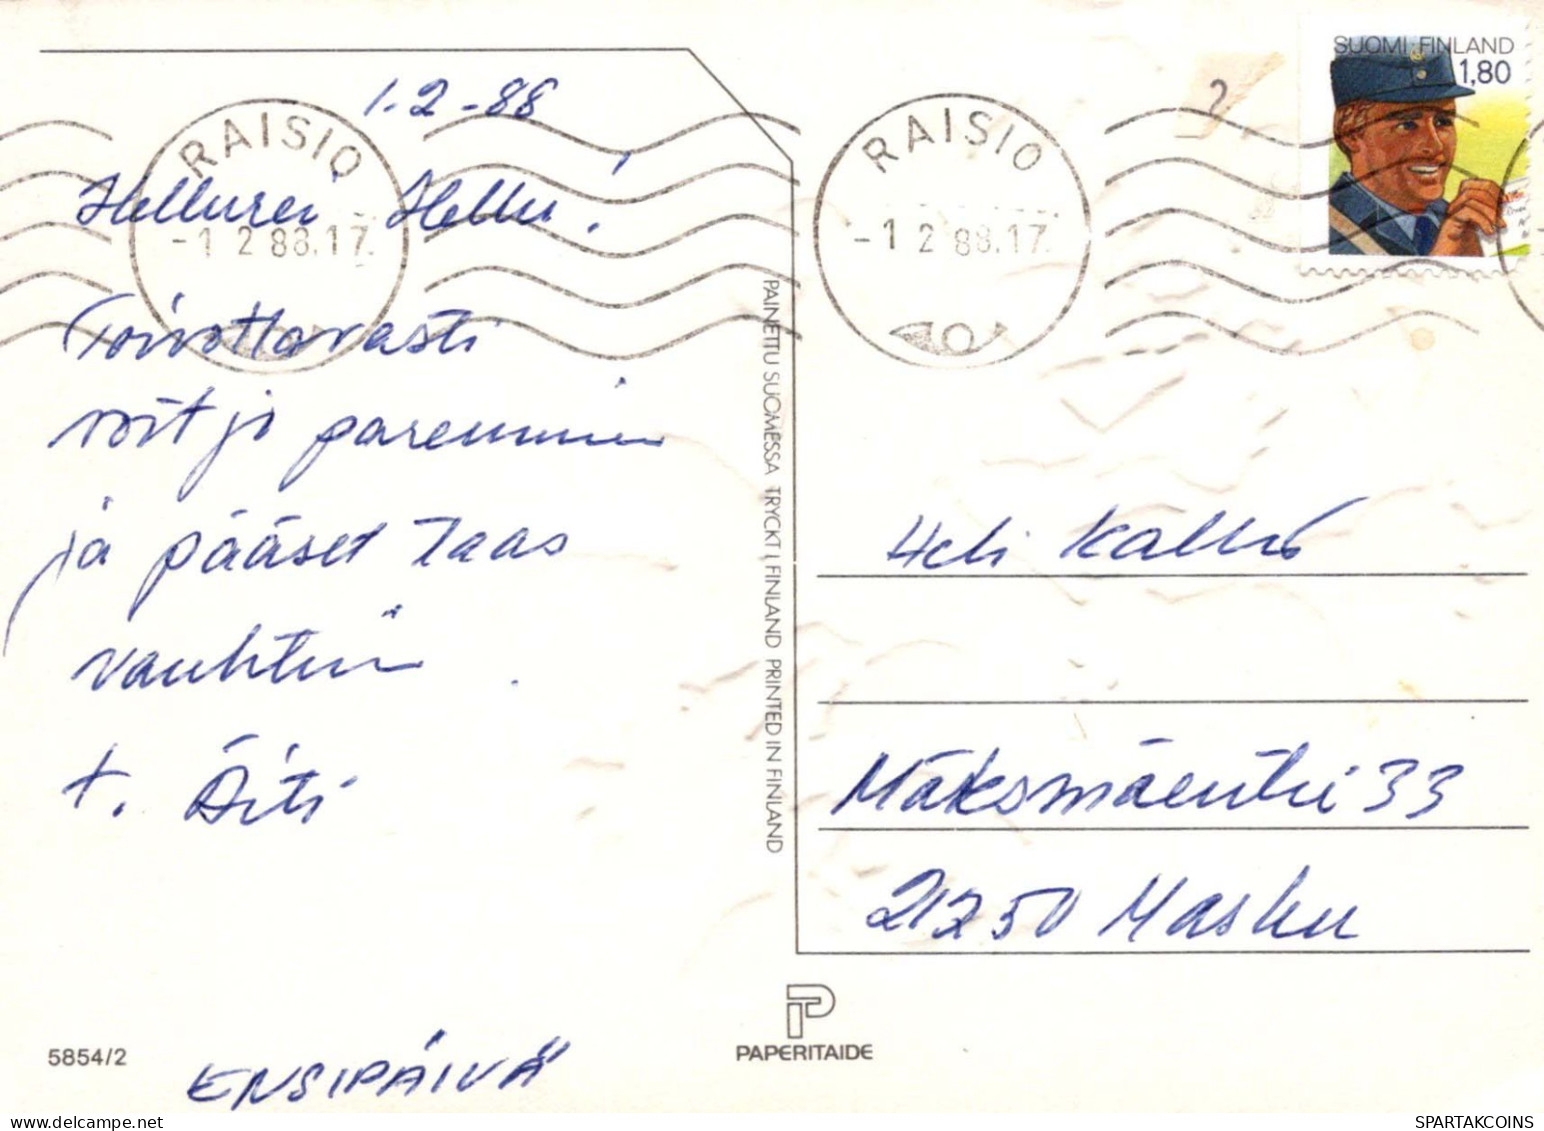 1.2-88
RAISIO
-1 2 88.17
Hellurei Hellu!
Toivottavasti
voit jo paremmin
ja pääset taas
vauhtiin
t. Äiti
5854/2
ENSIPÄIVÄ
PAINETTU SUOMESSA TRYCKT I FINLAND PRINTED IN FINLAND
RAISIO
-1 2 88.17
?
SUOMI FINLAND
1,80
Heli Kallio
33
21250 Masku
PAPERITAIDE
SPARTAKCOINS